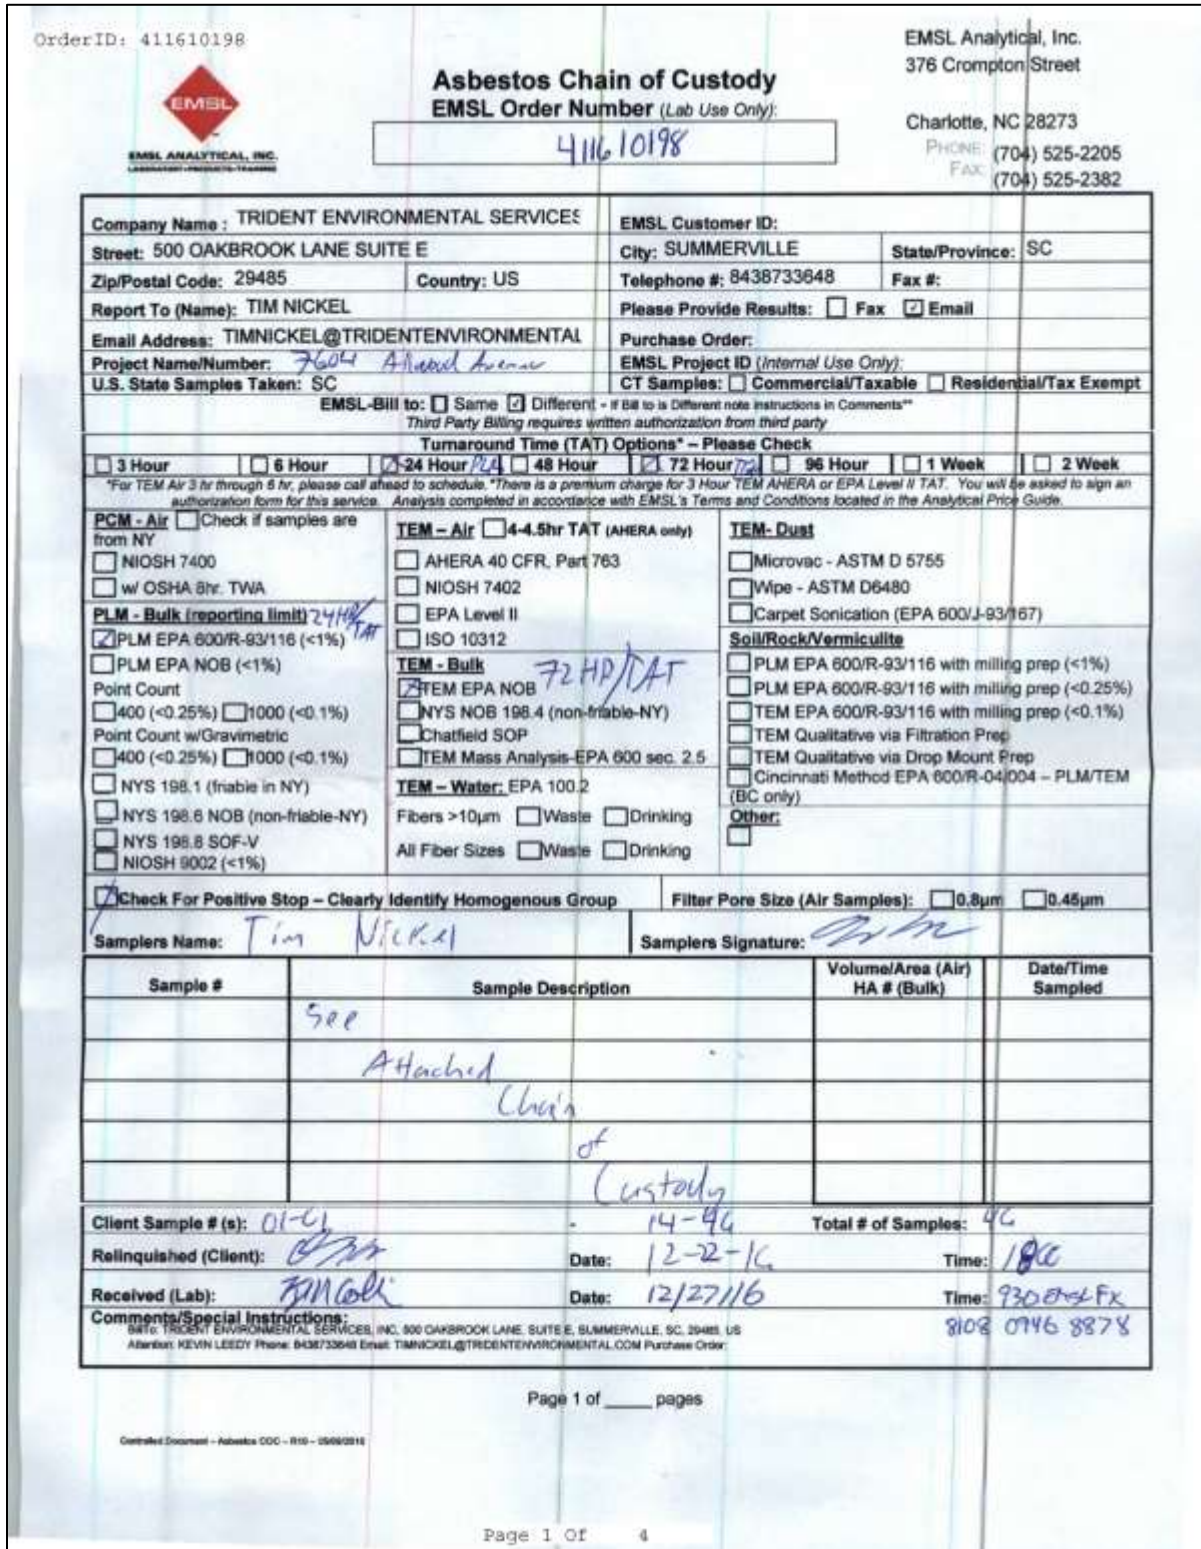 OrderID: 411610198
EMSL Analytical, Inc.
376 Crompton Street
Charlotte, NC 28273
PHONE: (704) 525-2205
FAX: (704) 525-2382
EMSL
EMSL ANALYTICAL, INC.
LABORATORY•PRODUCTS•TRAINING
Asbestos Chain of Custody
EMSL Order Number (Lab Use Only):
411610198
Company Name : TRIDENT ENVIRONMENTAL SERVICES
EMSL Customer ID:
Street: 500 OAKBROOK LANE SUITE E
City: SUMMERVILLE
State/Province: SC
Zip/Postal Code: 29485
Country: US
Telephone #: 8438733648
Fax #:
Report To (Name): TIM NICKEL
Please Provide Results: Fax Email
Email Address: TIMNICKEL@TRIDENTENVIRONMENTAL
Purchase Order:
Project Name/Number: 7604 Avenue
EMSL Project ID (Internal Use Only):
U.S. State Samples Taken: SC
CT Samples: Commercial/Taxable Residential/Tax Exempt
EMSL-Bill to: Same Different - If Bill to is Different note instructions in Comments**
Third Party Billing requires written authorization from third party
Turnaround Time (TAT) Options* – Please Check
3 Hour 6 Hour 24 Hour PLM 48 Hour 72 Hour TEM 96 Hour 1 Week 2 Week
*For TEM Air 3 hr through 6 hr, please call ahead to schedule. *There is a premium charge for 3 Hour TEM AHERA or EPA Level II TAT. You will be asked to sign an
authorization form for this service. Analysis completed in accordance with EMSL's Terms and Conditions located in the Analytical Price Guide.
PCM - Air Check if samples are
from NY
NIOSH 7400
w/ OSHA 8hr. TWA
PLM - Bulk (reporting limit) 24HR/TAT
PLM EPA 600/R-93/116 (<1%)
PLM EPA NOB (<1%)
Point Count
400 (<0.25%) 1000 (<0.1%)
Point Count w/Gravimetric
400 (<0.25%) 1000 (<0.1%)
NYS 198.1 (friable in NY)
NYS 198.6 NOB (non-friable-NY)
NYS 198.8 SOF-V
NIOSH 9002 (<1%)
TEM – Air 4-4.5hr TAT (AHERA only)
AHERA 40 CFR, Part 763
NIOSH 7402
EPA Level II
ISO 10312
TEM - Bulk 72 HR/TAT
TEM EPA NOB
NYS NOB 198.4 (non-friable-NY)
Chatfield SOP
TEM Mass Analysis-EPA 600 sec. 2.5
TEM – Water: EPA 100.2
Fibers >10µm Waste Drinking
All Fiber Sizes Waste Drinking
TEM- Dust
Microvac - ASTM D 5755
Wipe - ASTM D6480
Carpet Sonication (EPA 600/J-93/167)
Soil/Rock/Vermiculite
PLM EPA 600/R-93/116 with milling prep (<1%)
PLM EPA 600/R-93/116 with milling prep (<0.25%)
TEM EPA 600/R-93/116 with milling prep (<0.1%)
TEM Qualitative via Filtration Prep
TEM Qualitative via Drop Mount Prep
Cincinnati Method EPA 600/R-04/004 – PLM/TEM
(BC only)
Other:
Check For Positive Stop – Clearly Identify Homogenous Group
Filter Pore Size (Air Samples): 0.8µm 0.45µm
Samplers Name: Tim Nickel
Samplers Signature:
Sample #
Sample Description
Volume/Area (Air)
HA # (Bulk)
Date/Time
Sampled
See
Attached
Chain
of
Custody
Client Sample # (s): 01-01 - 14-46
Total # of Samples: 46
Relinquished (Client):
Date: 12-22-16
Time: 1800
Received (Lab):
Date: 12/27/16
Time: 930
8108 0946 8878
Comments/Special Instructions:
BillTo: TRIDENT ENVIRONMENTAL SERVICES, INC, 500 OAKBROOK LANE, SUITE E, SUMMERVILLE, SC, 29485, US
Attention: KEVIN LEEDY Phone: 8438733648 Email: TIMNICKEL@TRIDENTENVIRONMENTAL.COM Purchase Order:
Page 1 of ____ pages
Controlled Document – Asbestos COC – R10 –
Page 1 Of 4